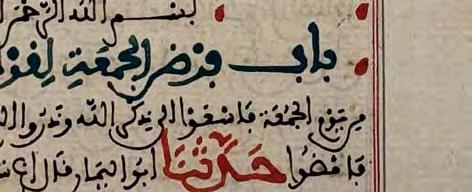 بسم الله الرحمن
باب فرض الجمعة لقو
من يوم الجمعة فاسعوا الى ذكر الله وذروا الب
فامضوا حدثنا ابو اليمان قال اخبر